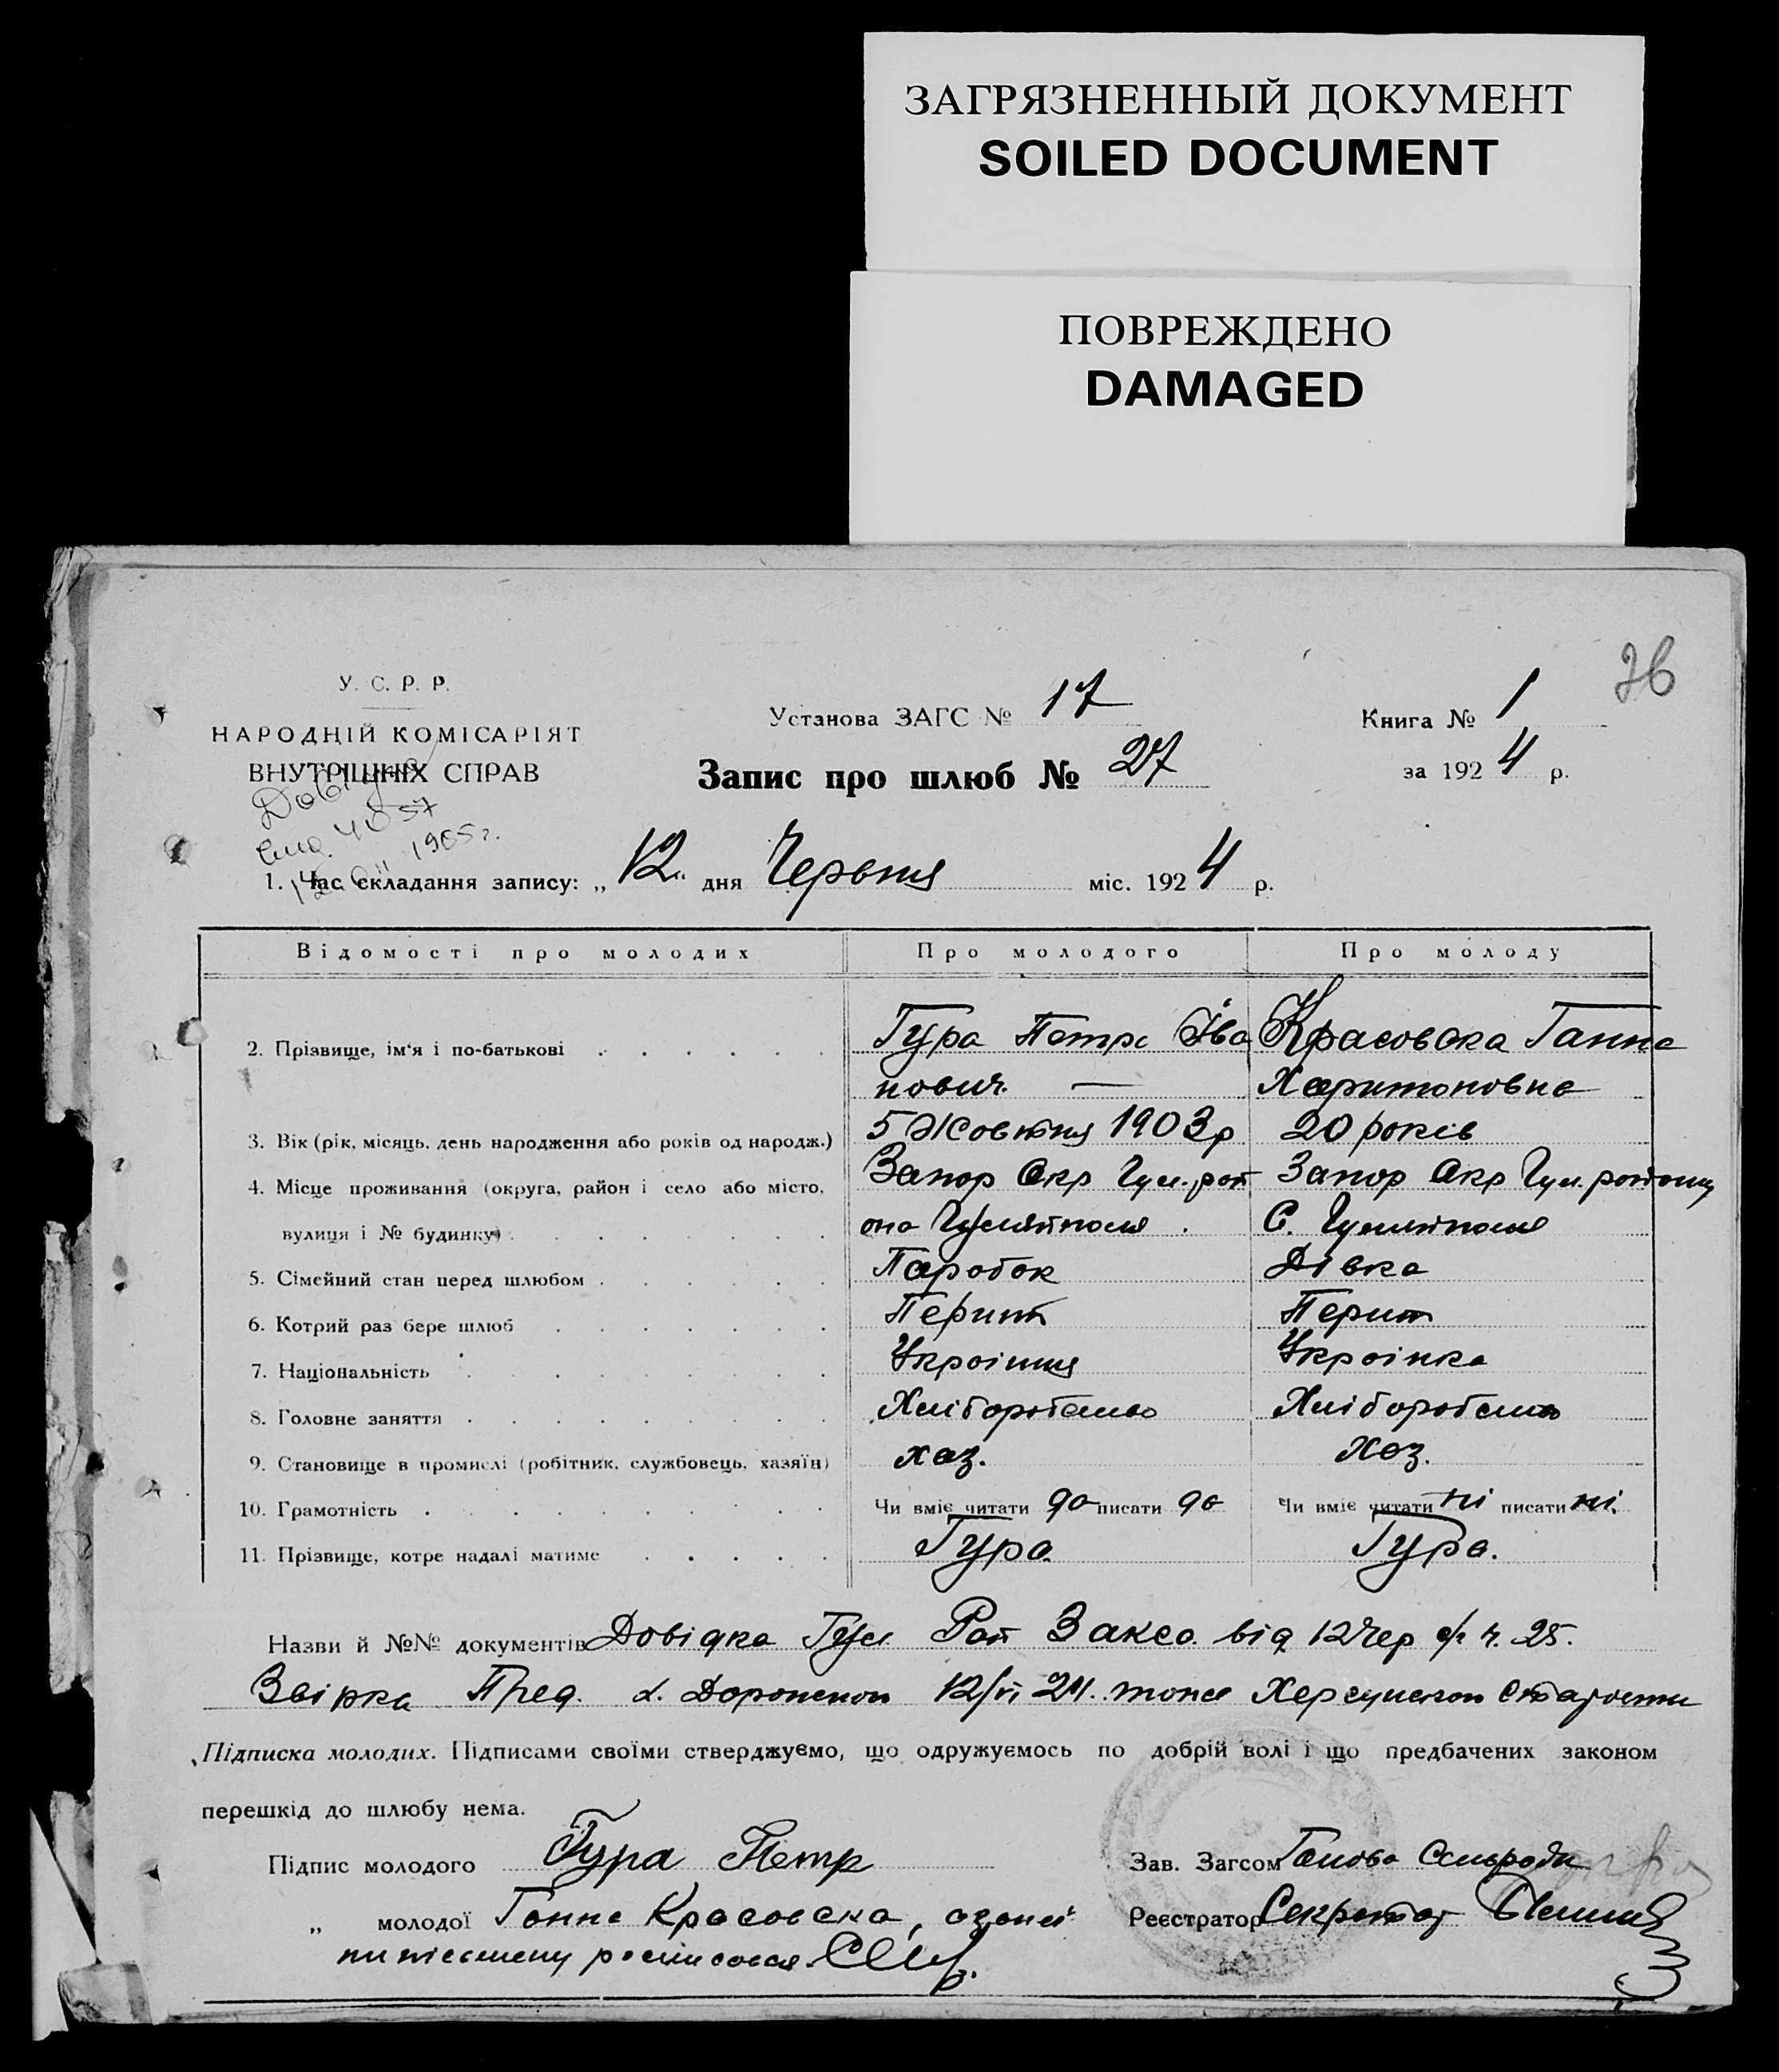 ЗАГРЯЗНЕННЫЙ ДОКУМЕНТ
SOILED DOCUMENT
ПОВРЕЖДЕНО
DAMAGED
У. С. Р. Р.
НАРОДНІЙ КОМІСАРІЯТ
ВНУТРІШНІХ СПРАВ
Установа ЗАГС № 17
Запис про шлюб № 27
Книга № 1
за 1924 р.
1965 г.
1. Час складання запису: „12" дня Червня міс. 1924 р.
Відомості про молодих Про молодого Про молоду
2. Прізвище, ім'я і по-батькові Гура Петро Іва Красовска Ганна
нович. — Харитоновна
3. Вік (рік, місяць, день народження або років од народж.) 5 Жовтня 1903 р 20 років
4. Місце проживання (округа, район і село або місто, Запор Окр Гул. рай Запор Окр Гул. району
вулиця і № будинку) она Гуляйполя . С. Гуляйполя
5. Сімейний стан перед шлюбом Паробок Дівка
6. Котрий раз бере шлюб Перший Перший
7. Національність Украінця Украінка
8. Головне заняття Хліборобство Хліборобство
9. Становище в промислі (робітник, службовець, хазяїн) хаз. хаз.
10. Грамотність Чи вміє читати да писати да Чи вміє читати ні писати ні.
11. Прізвище, котре надалі матиме Гура Гура.
Назви й №№ документів Довідка Гул Рай Закса від 12 Чер с/г ч. 25.
Звірка Пред. 12/VI 24.
Підписка молодих. Підписами своїми стверджуємо, що одружуємось по добрій волі і що предбачених законом
перешкід до шлюбу нема.
Підпис молодого Гура Петр
Зав. Загсом Голова Сельради
„ молодої Ганна Красовска, а за неі
Реєстратор Секретар